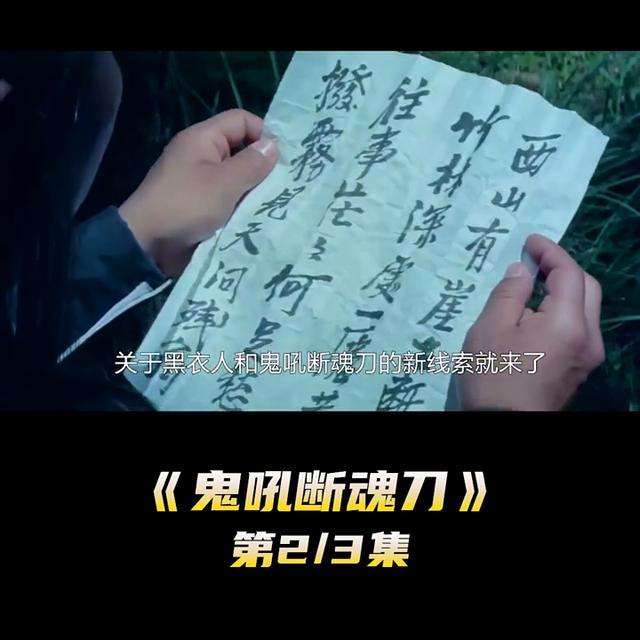 西山有崖
竹林深處一
往事茫々何
撥霧見天问
关于黑衣人和鬼吼断魂刀的新线索就来了
《鬼吼断魂刀》
第2/3集